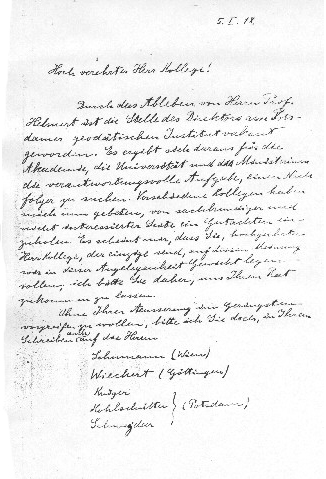 5. I. 18.
Hoch verehrter Herr Kollege!
Durch das Ableben von Herrn Prof.
Helmert ist die Stelle des Direktors am Pots-
damer geodätischen Institut vakant
geworden. Es ergibt sich daraus für die
Akademie, die Universität und das Ministerium
die verantwortungsvolle Aufgabe, einen Nach
folger zu suchen. Verschiedene Kollegen haben
mich nun gebeten, von sachkundiger und
nicht interessierter Seite ein Gutachten ein
zuholen. Es scheint mir, dass Sie, hochgeehrter
Herr Kollege, der einzige sind, auf dessen Meinung
wir in dieser Angelegenheit Gewicht legen
wollen; ich bitte Sie daher, uns Ihren Rat
zukommen zu lassen.
Ohne Ihrer Äusserung im Geringsten
vorgreifen zu wollen, bitte ich Sie doch, in Ihrem
Schreiben auch auf die Herren
Schumann (Wien)
Wiechert (Göttingen)
Krüger
Kohlschütter (Potsdam)